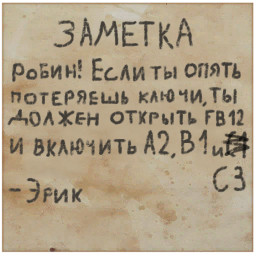 ЗАМЕТКА
РОБИН! ЕСЛИ ТЫ ОПЯТЬ
ПОТЕРЯЕШЬ КЛЮЧИ, ТЫ
ДОЛЖЕН ОТКРЫТЬ FB12
И ВКЛЮЧИТЬ A2, B1 и
C3
-ЭРИК